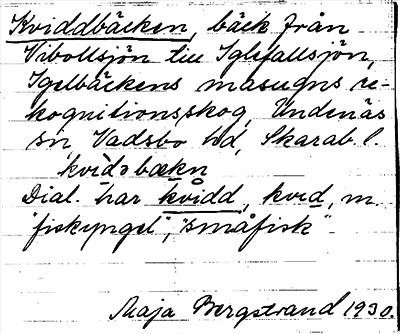 Kviddbäcken, bäck från
Vibollsjön till Iglefallsjön,
Igelbäckens masugns re-
kognitionsskog, Undenäs
sn, Vadsbo hd, Skarab. l.
kvidəbækn
Dial. har kvidd, kvid, m
"fiskyngel", "småfisk".
Maja Bergstrand 1930.